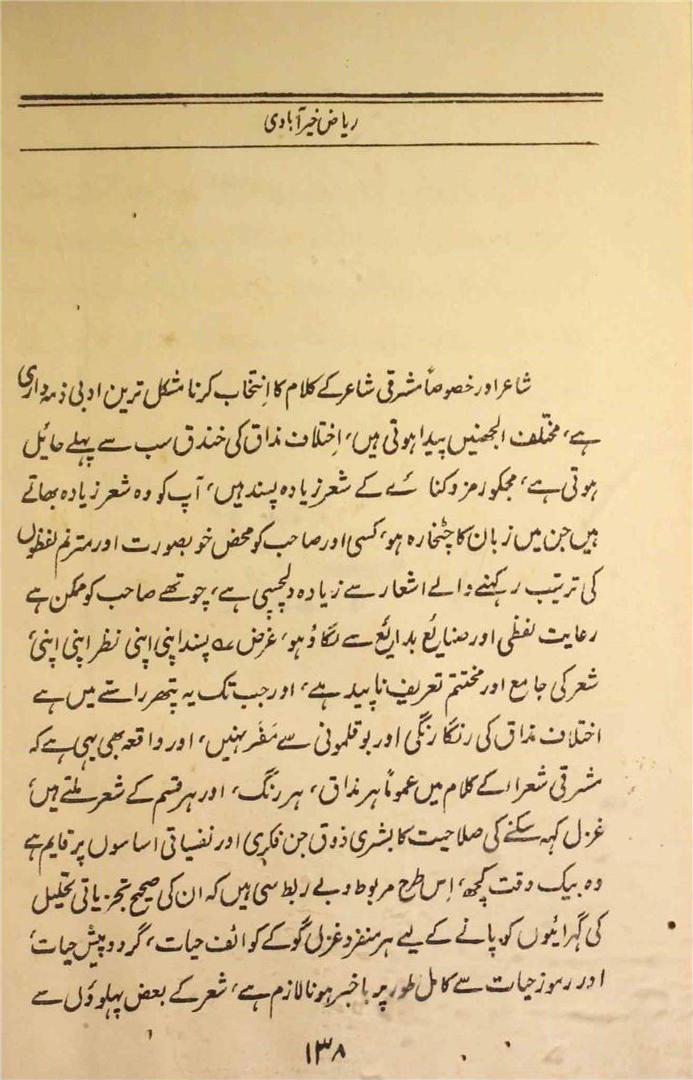 ریاض خیرآبادی
شاعر اور خصوصاً مشرقی شاعر کے کلام کا اِنتخاب کرنا مشکل ترین ادبی ذمہ داری
ہے، مختلف الجھنیں پیدا ہوتی ہیں، اِختلاف مذاق کی خندق سب سے پہلے حایٔل
ہوتی ہے، مجکو رمز و کنائے کے شعر زیادہ پسند ہیں، آپ کو وہ شعر زیادہ بھاتے
ہیں جن میں زبان کا چٹخارہ ہو، کسی اور صاحب کو محض خوبصورت اور مترنم لفظوں
کی ترتیب رکہنے والے اشعار سے زیادہ دلچسپی ہے، چوتھے صاحب کو ممکن ہے
رعایت لفظی اور صنایٔع بدایٔع سے لگاؤ ہو، غرض ے پسند اپنی اپنی نظر اپنی اپنی،
شعر کی جامع اور مختتم تعریف ناپید ہے، اور جب تک یہ پتھر راستے میں ہے
اختلاف مذاق کی رنگا رنگی اور بوقلمونی سے مَفَر نہیں، اور واقعہ بھی یہی ہے کہ
مشرقی شعراء کے کلام میں عموماً ہر مذاق، ہر رنگ، اور ہر قسم کے شعر ملتے ہیں،
غزل کہہ سکنے کی صلاحیت کا بشری ذوق جن فکری اور نفسیاتی اساسوں پر قایم ہے
وہ بیک وقت کچھ اِس طرح مربوط و بے ربط سی ہیں کہ ان کی صحیح تجزیاتی تحلیل
کی گہرائیوں کو پانے کے لیے ہر منفرد غزل گو کے کوائف حیات، گرد و پیش حیات،
اور رموز حیات سے کامل طور پر باخبر ہونا لازم ہے، شعر کے بعض پہلوؤں سے
۱۳۸